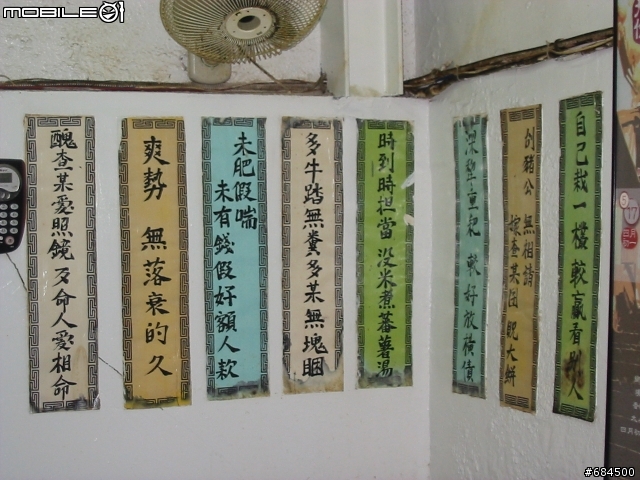 MOBILE01
自己栽一欉較贏看別人
刣豬公無相請
嫁查某囝大餅
深犁重耙較好放橫債
時到時担當沒米煮蕃薯湯
多牛踏無糞多某無塊睏
未肥假喘
未有錢假好額人款
爽勢無落衰的久
醜查某愛照鏡歹命人愛相命
#684500